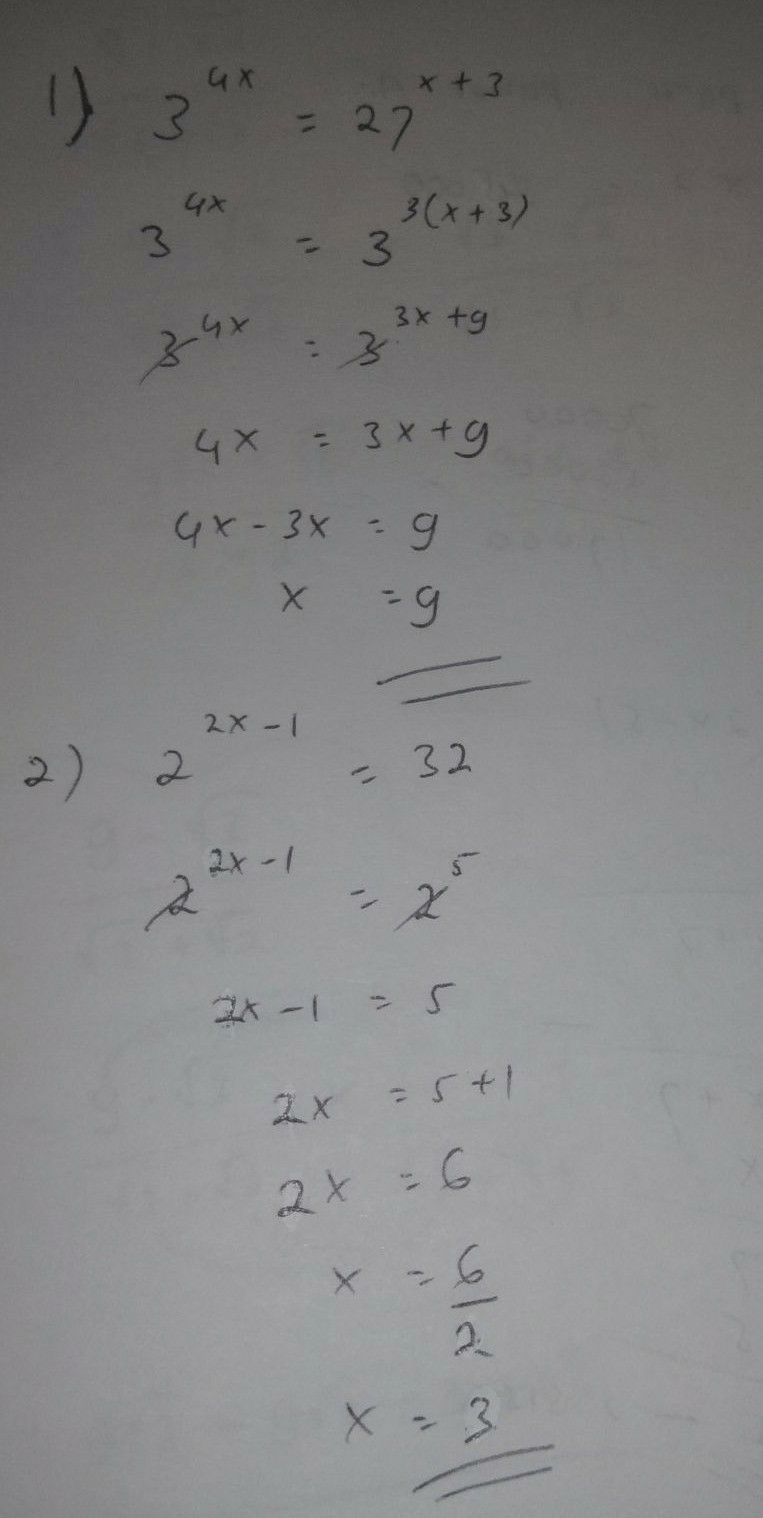 1) 3^{4x} = 27^{x+3}
3^{4x} = 3^{3(x+3)}
3^{4x} = 3^{3x+9}
4x = 3x+9
4x-3x = 9
x = 9
2) 2^{2x-1} = 32
2^{2x-1} = 2^5
2x-1 = 5
2x = 5+1
2x = 6
x = 6/2
x = 3